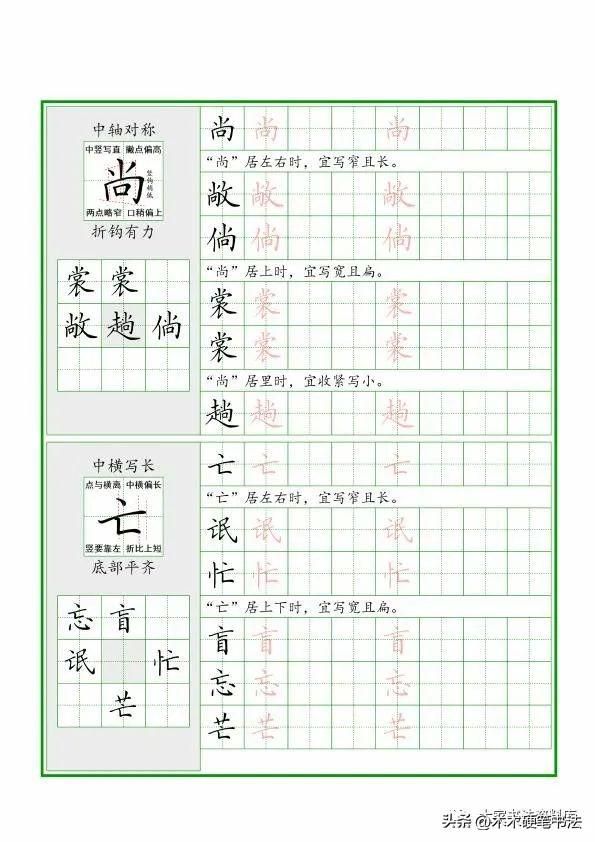 中轴对称
中竖写直 撇点偏高
尚
竖钩稍低
两点略窄 口稍偏上
折钩有力
裳 裳
敞 趟 倘
尚 尚 尚
“尚”居左右时，宜写窄且长。
敞 敞 敞
倘 倘 倘
“尚”居上时，宜写宽且扁。
裳 裳 裳
裳 裳 裳
“尚”居里时，宜收紧写小。
趟 趟 趟
中横写长
点与横离 中横偏长
亡
竖要靠左 折比上短
底部平齐
忘 盲
氓 忙
芒
亡 亡 亡
“亡”居左右时，宜写窄且长。
氓 氓 氓
忙 忙 忙
“亡”居上下时，宜写宽且扁。
盲 盲 盲
忘 忘 忘
芒 芒 芒
头条 @木木硬笔书法